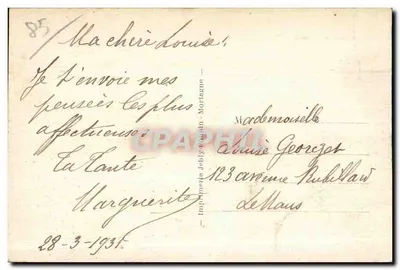 85
Ma chère Louise!
Je t'envoie mes
pensées les plus
affectueuses
Ta Tante
Marguerite
28-3-1931
Imprimerie Mortagne
Mademoiselle
Louise Georget
123 avenue Rubillard
Le Mans